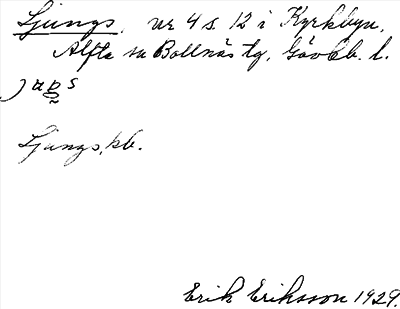 Ljungs, nr 4 s. 12 i Kyrkbyn,
Alfta sn Bollnäs tg, Gävleb. l.
Ljungs, kb.
Erik Eriksson 1929.